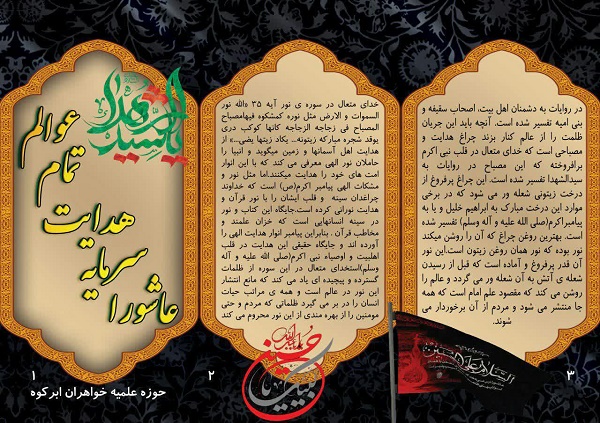 یا سیدالشهدا
عوالم
تمام
هدایت
سرمایه
عاشورا
۱
حوزه علمیه خواهران ابرکوه
خدای متعال در سوره ی نور آیه ۳۵ «الله نور
السموات و الارض مثل نوره کمشکوه فیهامصباح
المصباح فی زجاجه الزجاجه کانها کوکب دری
یوقد شجره مبارکه زیتونه... یکاد زیتها یضی...» از
هدایت اهل آسمانها و زمین میگوید و انبیا را
حاملان نور الهی معرفی می کند که با این انوار
امت های خود را هدایت میکنند.اما مثل نور و
مشکات الهی پیامبر اکرم(ص) است که خداوند
چراغدان سینه و قلب ایشان را با نور قرآن و
هدایت نورانی کرده است.جایگاه این کتاب و نور
در سینه انسانهایی است که خزان علمند و
مخاطب قرآن . بنابراین پیامبر انوار هدایت الهی را
آورده اند و جایگاه حقیقی این هدایت در قلب
اهلبیت و اوصیاء نبی اکرم(صلی الله علیه و آله
وسلم)استخدای متعال در این سوره از ظلمات
گسترده و پیچیده ای یاد می کند که مانع انتشار
این نور در عالم است و همه ی مراتب حیات
انسان را در بر می گیرد ظلماتی که مردم و حتی
مومنین را از بهره مندی از این نور محروم می کند
۲
در روایات به دشمنان اهل بیت، اصحاب سقیفه و
بنی امیه تفسیر شده است. آنچه باید این جریان
ظلمت را از عالم کنار بزند چراغ هدایت و
مصباحی است که خدای متعال در قلب نبی اکرم
برافروخته که این مصباح در روایات به
سیدالشهدا تفسیر شده است. این چراغ پرفروغ از
درخت زیتونی شعله ور می شود که در برخی
موارد این درخت مبارک به ابراهیم خلیل و یا به
پیامبر اکرم(صلی الله علیه و آله وسلم) تفسیر شده
است. بهترین روغن چراغ که آن را روشن میکند
نور بوده که نور همان روغن زیتون است،این نور
آن قدر پرفروغ و آماده است که قبل از رسیدن
شعله ی آتش به آن شعله ور می گردد و عالم را
روشن می کند که مقصود علم امام است که همه
جا منتشر می شود و مردم از آن برخوردار می
شوند.
السلام علیک یا
۳